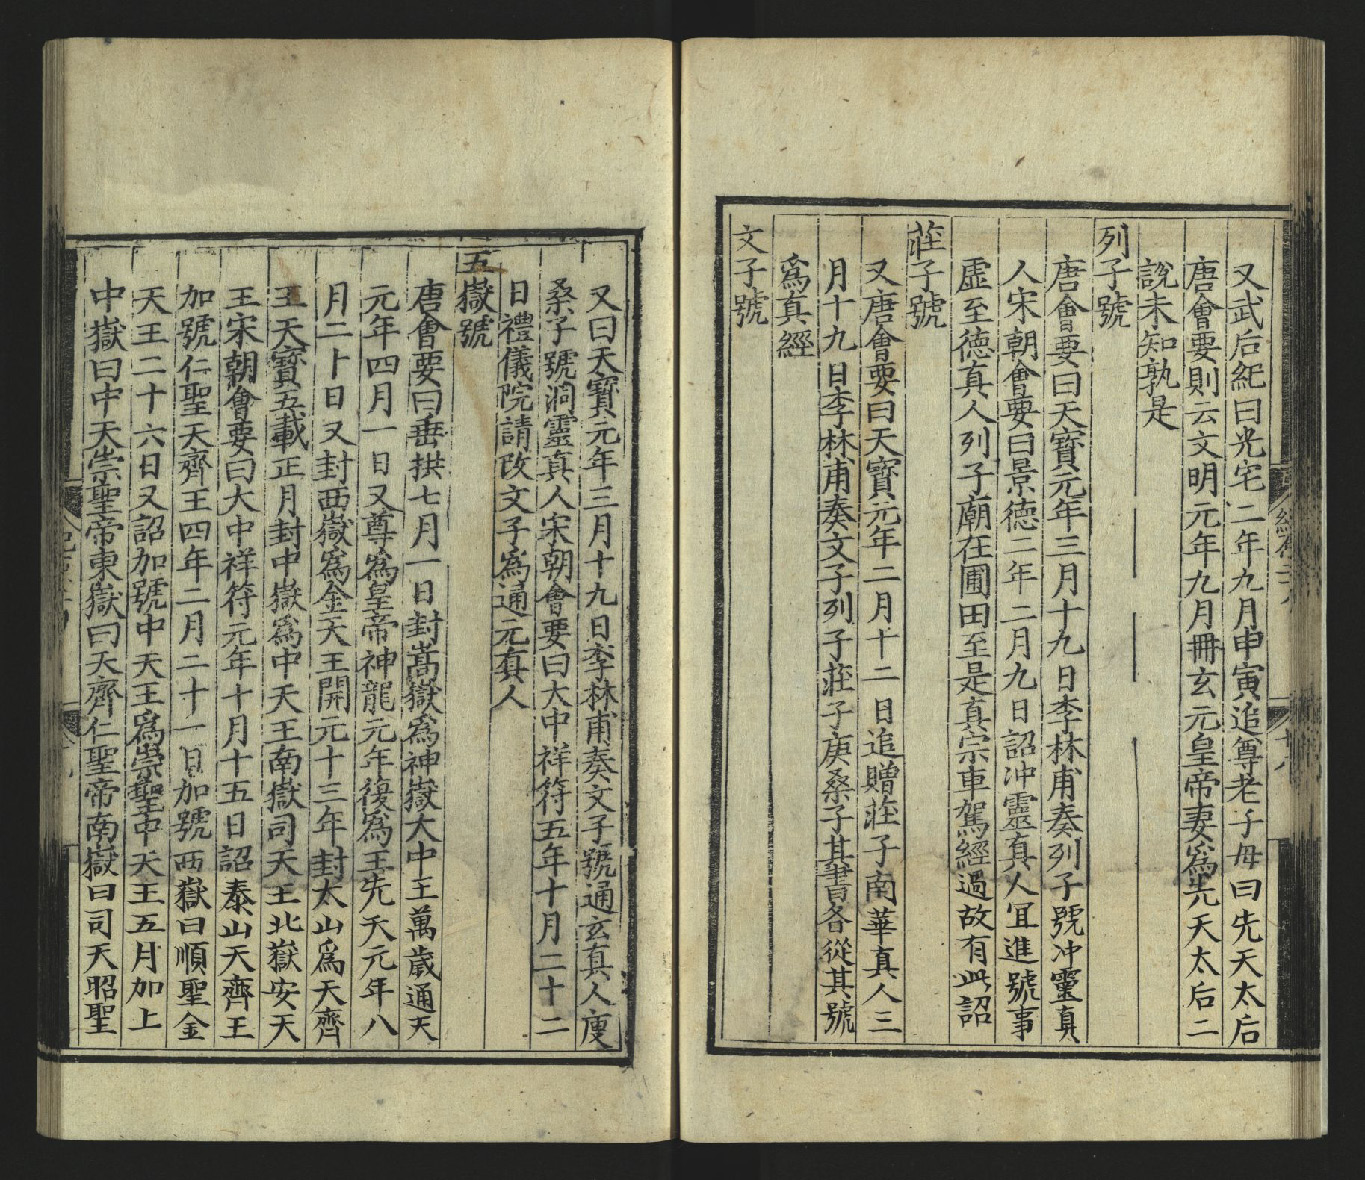 又武后紀曰光宅二年九月申寅追尊老子母曰先天太后
唐會要則云文明元年九月冊玄元皇帝妻爲先天太后二
說未知孰是
列子號
唐會要曰天寶元年三月十九日李林甫奏列子號冲靈真
人宋朝會要曰景德二年二月九日詔冲靈真人冝進號事
虛至德真人列子廟在圃田至是真宗車駕經過故有此詔
莊子號
又唐會要曰天寶元年二月十二日追贈莊子南華真人三
月十九日李林甫奏文子列子莊子庚桑子其書各從其號
爲真經
文子號
又曰天寶元年三月十九日李林甫奏文子號通玄真人庚
桑子號洞靈真人宋朝會要曰大中祥符五年十月二十二
日禮儀院請改文子爲通元真人
五嶽號
唐會要曰垂拱七月一日封嵩嶽爲神嶽大中王萬歲通天
元年四月一日又尊爲皇帝神龍元年復爲王先天元年八
月二十日又封西嶽爲金天王開元十三年封太山爲天齊
王天寶五載正月封中嶽爲中天王南嶽司天王北嶽安天
王宋朝會要曰大中祥符元年十月十五日詔泰山天齊王
加號仁聖天齊王四年二月二十一日加號西嶽曰順聖金
天王二十六日又詔加號中天王爲崇聖中天王五月加上
中嶽曰中天崇聖帝東嶽曰天齊仁聖帝南嶽曰司天昭聖